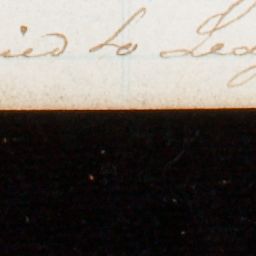 ied to Led